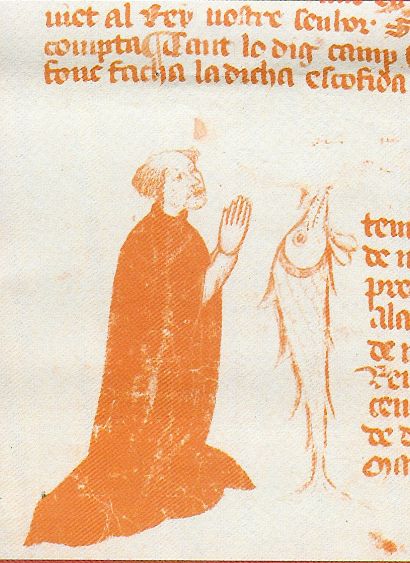 met al Rey nostre senhor. S
compta ¶ Cant lo dig camp
fonc facha la dicha escofida
tem
de n
pre
ala
de
Rei
ceu
de d